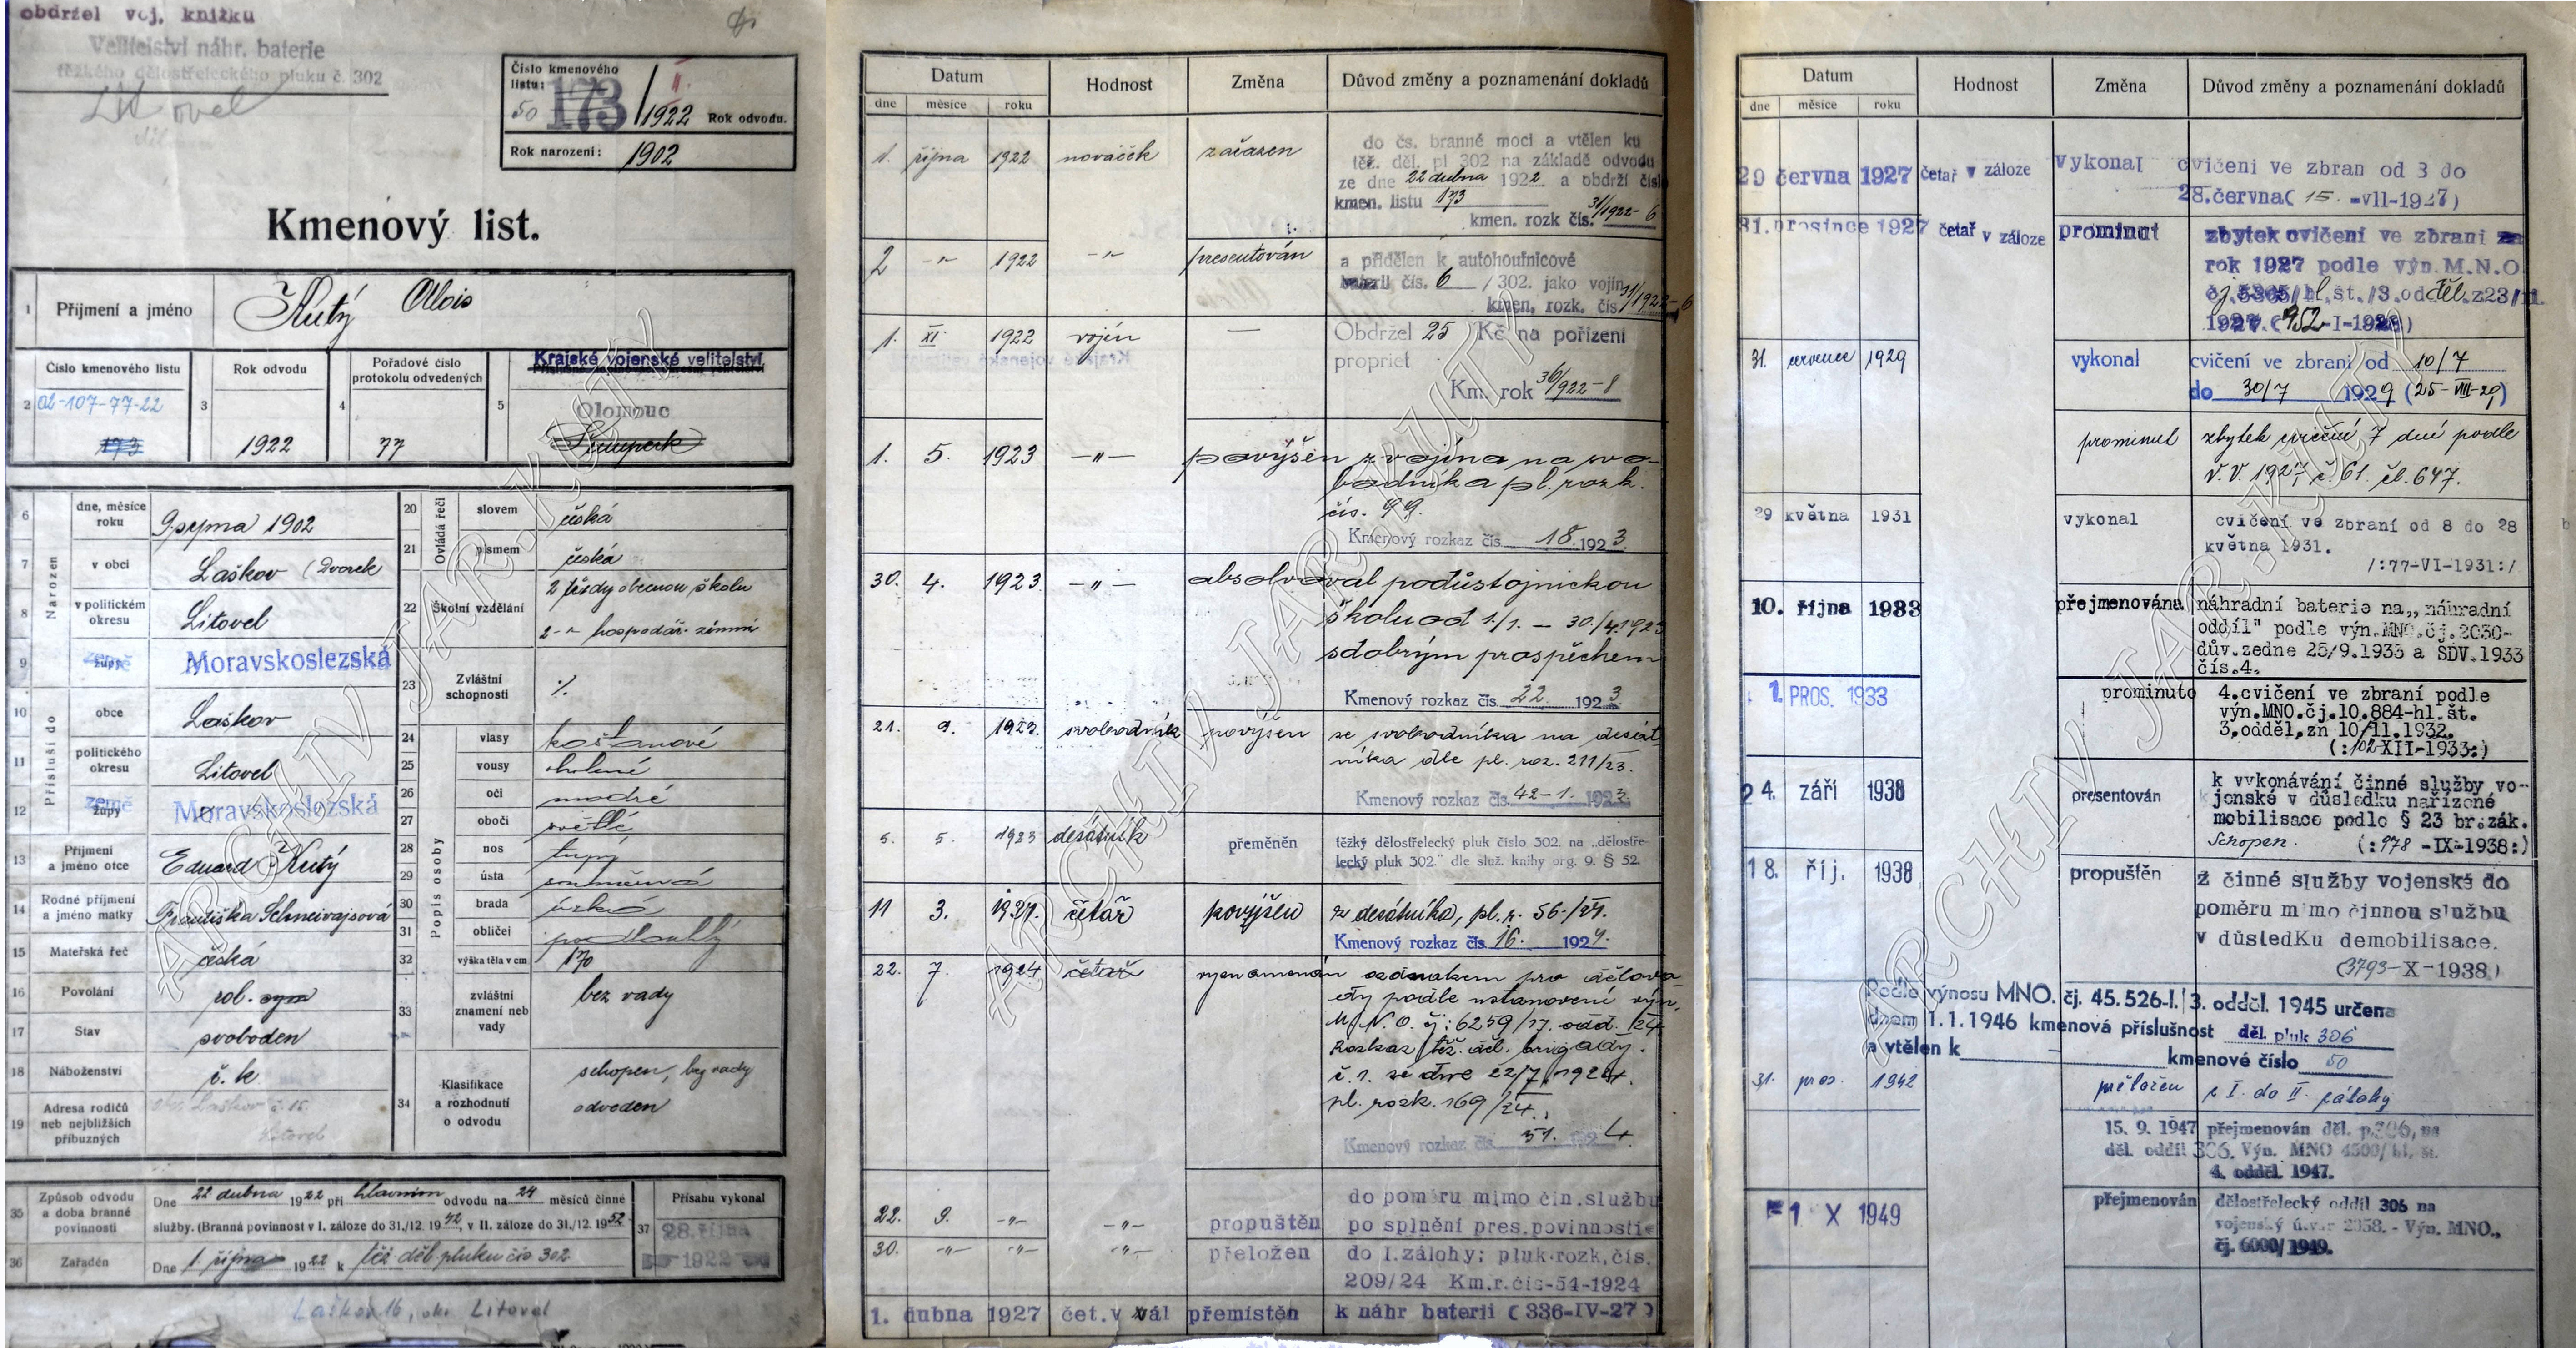 obdržel voj. knížku
Velitelství náhr. baterie
těžkého dělostřeleckého pluku č. 302
Litovel
Číslo kmenového listu:
50 173 / II. 1922 Rok odvodu.
Rok narození: 1902
Kmenový list.
1 Příjmení a jméno Kutý Alois
Číslo kmenového listu
2 02-107-77-22
173
Rok odvodu
3 1922
Pořadové číslo protokolu odvedených
4 77
Krajské vojenské velitelství
5 Olomouc
Šumperk
Narozen
6 dne, měsíce roku 9. srpna 1902
7 v obci Laškov (Dvorek
8 v politickém okresu Litovel
9 země župy Moravskoslezská
Přísluší do
10 obce Laškov
11 politického okresu Litovel
12 země župy Moravskoslezská
13 Příjmení a jméno otce Eduard Kutý
14 Rodné příjmení a jméno matky Františka Schneivajsová
15 Mateřská řeč česká
16 Povolání rol. syn
17 Stav svoboden
18 Náboženství č. k
19 Adresa rodičů neb nejbližších příbuzných Laškov č. 15
Litovel
Ovládá řeči
20 slovem česká
21 písmem česká
22 Školní vzdělání 2 třídy obecnou školu
2 -"- hospodář. zimní
23 Zvláštní schopnosti ·/.
Popis osoby
24 vlasy kaštanové
25 vousy holené
26 oči modré
27 obočí světlé
28 nos tupý
29 ústa souměrná
30 brada úzká
31 obličej podlouhlý
32 výška těla v cm 170
33 zvláštní znamení neb vady bez vady
34 Klasifikace a rozhodnutí o odvodu schopen, bez vady
odveden
35 Způsob odvodu a doba branné povinnosti
Dne 22 dubna 1922 při hlavním odvodu na 24 měsíců činné
služby. (Branná povinnost v I. záloze do 31./12. 1942, v II. záloze do 31./12. 1952
36 Zařaděn Dne 1. října 1922 k těž děl. pluku čís 302
37 Přísahu vykonal
28. října
1922
Laškov 16, okr. Litovel
Datum Hodnost Změna Důvod změny a poznamenání dokladů
dne měsíce roku
1. října 1922 nováček zařazen do čs. branné moci a vtělen ku
těž. děl. pl 302 na základě odvodu
ze dne 22 dubna 1922 a obdrží čísl
kmen. listu 173
kmen. rozk čís. 31/1922-6
2 -"- 1922 -"- presentován a přidělen k autohoufnicové
baterii čís. 6 /302. jako vojín
kmen. rozk. čís 31/1922-6
1. XI 1922 vojín — Obdržel 25 Kč na pořízení
propriet
Km. rok 36/922-8
1. 5. 1923 -"- povýšen z vojína na svo-
bodníka pl. rozk.
čís. 99.
Kmenový rozkaz čís. 18. 1923
30. 4. 1923 -"- absolvoval poddůstojnickou
školu od 1./1. — 30./4. 1923
s dobrým prospěchem
Kmenový rozkaz čís. 22. 1923
21. 9. 1923. svobodník povýšen ze svobodníka na desát-
níka dle pl. roz. 211/23.
Kmenový rozkaz čís. 42-1. 1923
5. 1923 desátník přeměněn těžký dělostřelecký pluk číslo 302. na „dělostře-
lecký pluk 302." dle služ. knihy org. 9. § 52.
11 3. četař povýšen z desátníka, pl. r. 56./
Kmenový rozkaz čís. 16. 1924.
22. 7. 1924 četař vyznamenán odznakem pro dělova-
ody podle ustanovení výn.
M. N. O. čj: 6259/17. odd. /24
Rozkaz těž. děl. brigády.
č. 1. ze dne 22/7. 1924.
pl. rozk. 169/24.
Kmenový rozkaz čís. 37. 1924
22. 9. -"- -"- propuštěn do poměru mimo čin. službu
po splnění pres. povinnosti
30. -"- -"- -"- přeložen do I. zálohy; pluk. rozk. čís.
209/24 Km.r.čís-54-1924
1. dubna 1927 čet. v zál přemístěn k náhr baterii (336-IV-27)
Datum Hodnost Změna Důvod změny a poznamenání dokladů
dne měsíce roku
29 června 1927 četař v záloze vykonal cvičení ve zbran od 3 do
28. června( 15. -VII-1927)
31. prosince 1927 četař v záloze prominut zbytek cvičení ve zbrani za
rok 1927 podle výn. M.N.O.
čj. 5365/hl. št./3. odděl. z 23/11.
1927. (952-I-1928)
31. července 1929 vykonal cvičení ve zbrani od 10/7
do 30/7 1929 (25-VIII-29)
prominut zbytek cvičení 7 dní podle
V. V. 1927, č. 61. čl. 647.
29 května 1931 vykonal cvičení ve zbraní od 8 do 28
května 1931.
/:77-VI-1931:/
10. října 1933 přejmenována náhradní baterie na „náhradní
oddíl" podle výn. MNO. čj. 2030-
dův. zedne 25/9. 1933 a SDV. 1933
čís. 4.
1. PROS. 1933 prominuto 4. cvičení ve zbraní podle
výn. MNO. čj. 10.884-hl. št.
3. odděl. zn 10/11. 1932.
(:102-XII-1933:)
24. září 1938 presentován k vykonávání činné služby vo-
jenské v důsledku nařízené
mobilisace podle § 23 br. zák.
Schopen. (:978 -IX-1938:)
18. říj. 1938 propuštěn z činné služby vojenské do
poměru mimo činnou službu
v důsledku demobilisace.
(3793-X-1938)
Podle výnosu MNO. čj. 45.526-I. 3. odděl. 1945 určena
dnem 1.1.1946 kmenová příslušnost děl. pluk 306
a vtělen k kmenové číslo 50
31. pros. 1942 přeložen z I. do II. zálohy
15. 9. 1947 přejmenován děl. p. 306, na
děl. oddíl 306. Výn. MNO 4500/hl. št.
4. odděl. 1947.
1 X 1949 přejmenován dělostřelecký oddíl 306 na
vojenský útvar 2358. - Výn. MNO.,
čj. 6000/1949.
ARCHIV JAR. KUTÝ
ARCHIV JAR. KUTÝ
ARCHIV JAR. KUTÝ